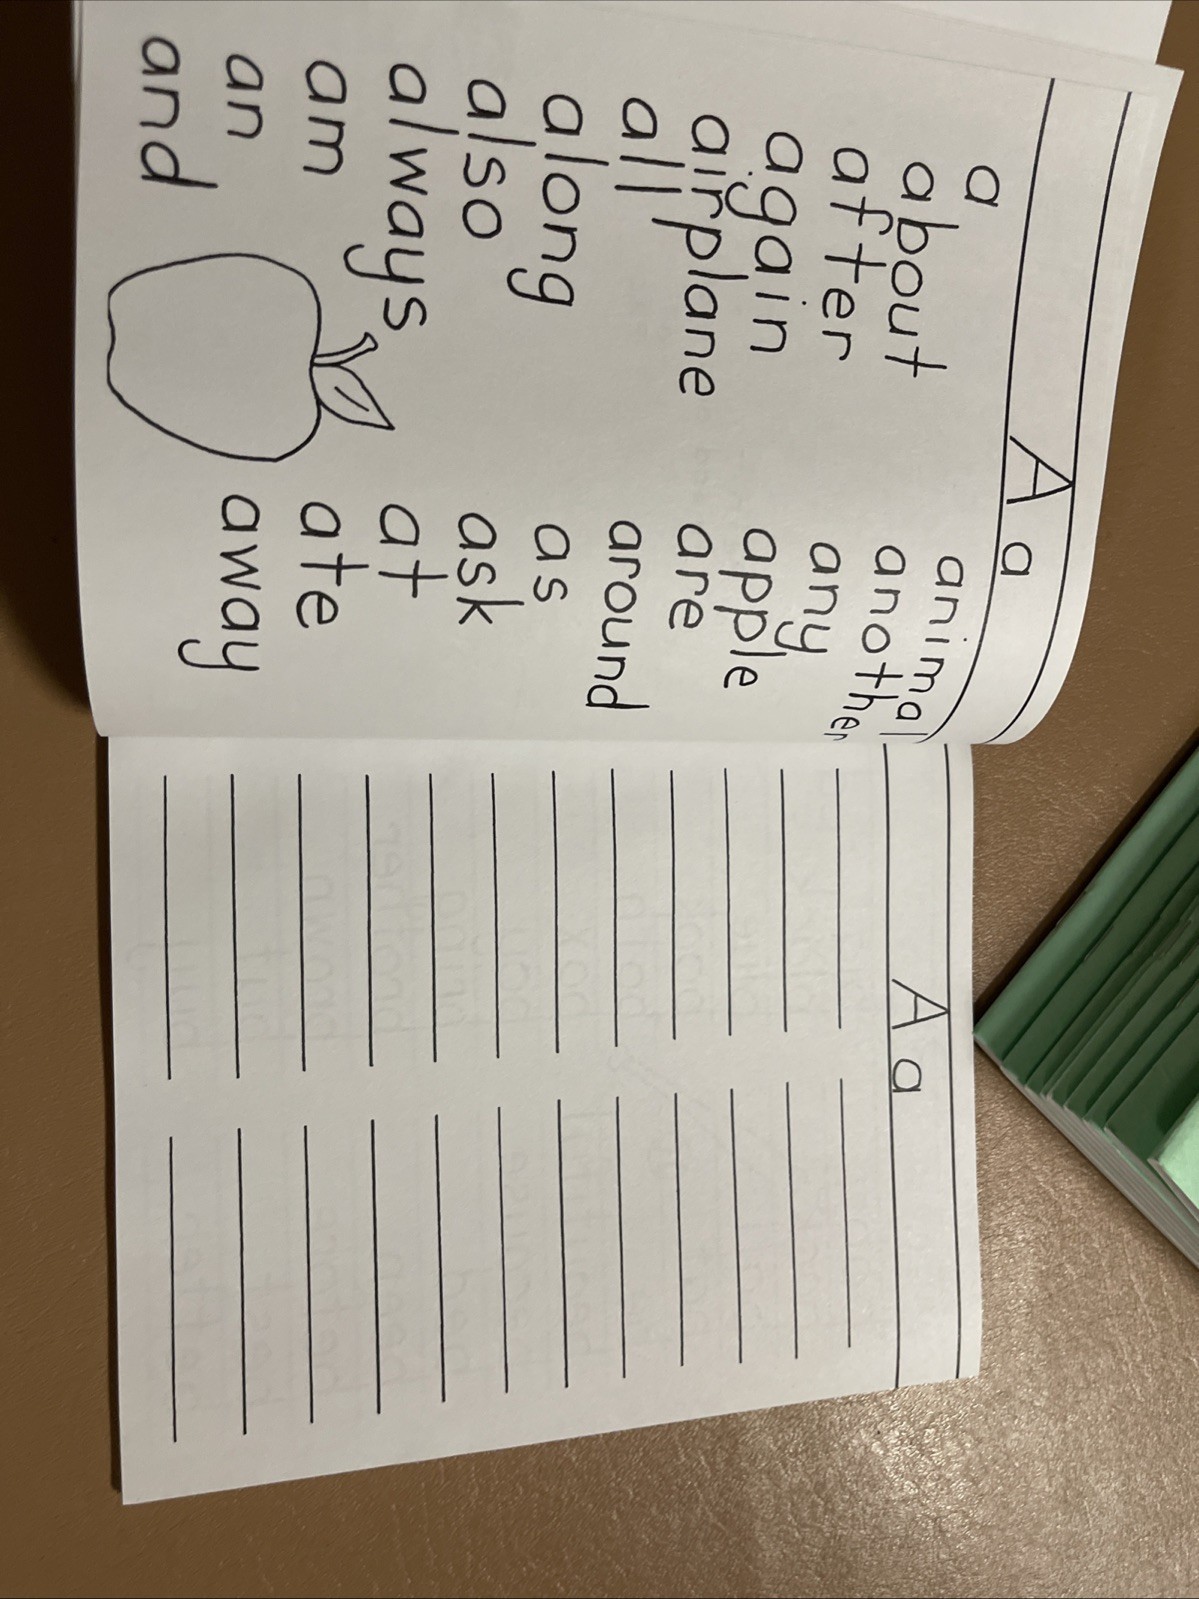 A a
a
about
after
again
airplane
all
along
also
always
am
an
and
animal
another
any
apple
are
around
as
ask
at
ate
away
A a